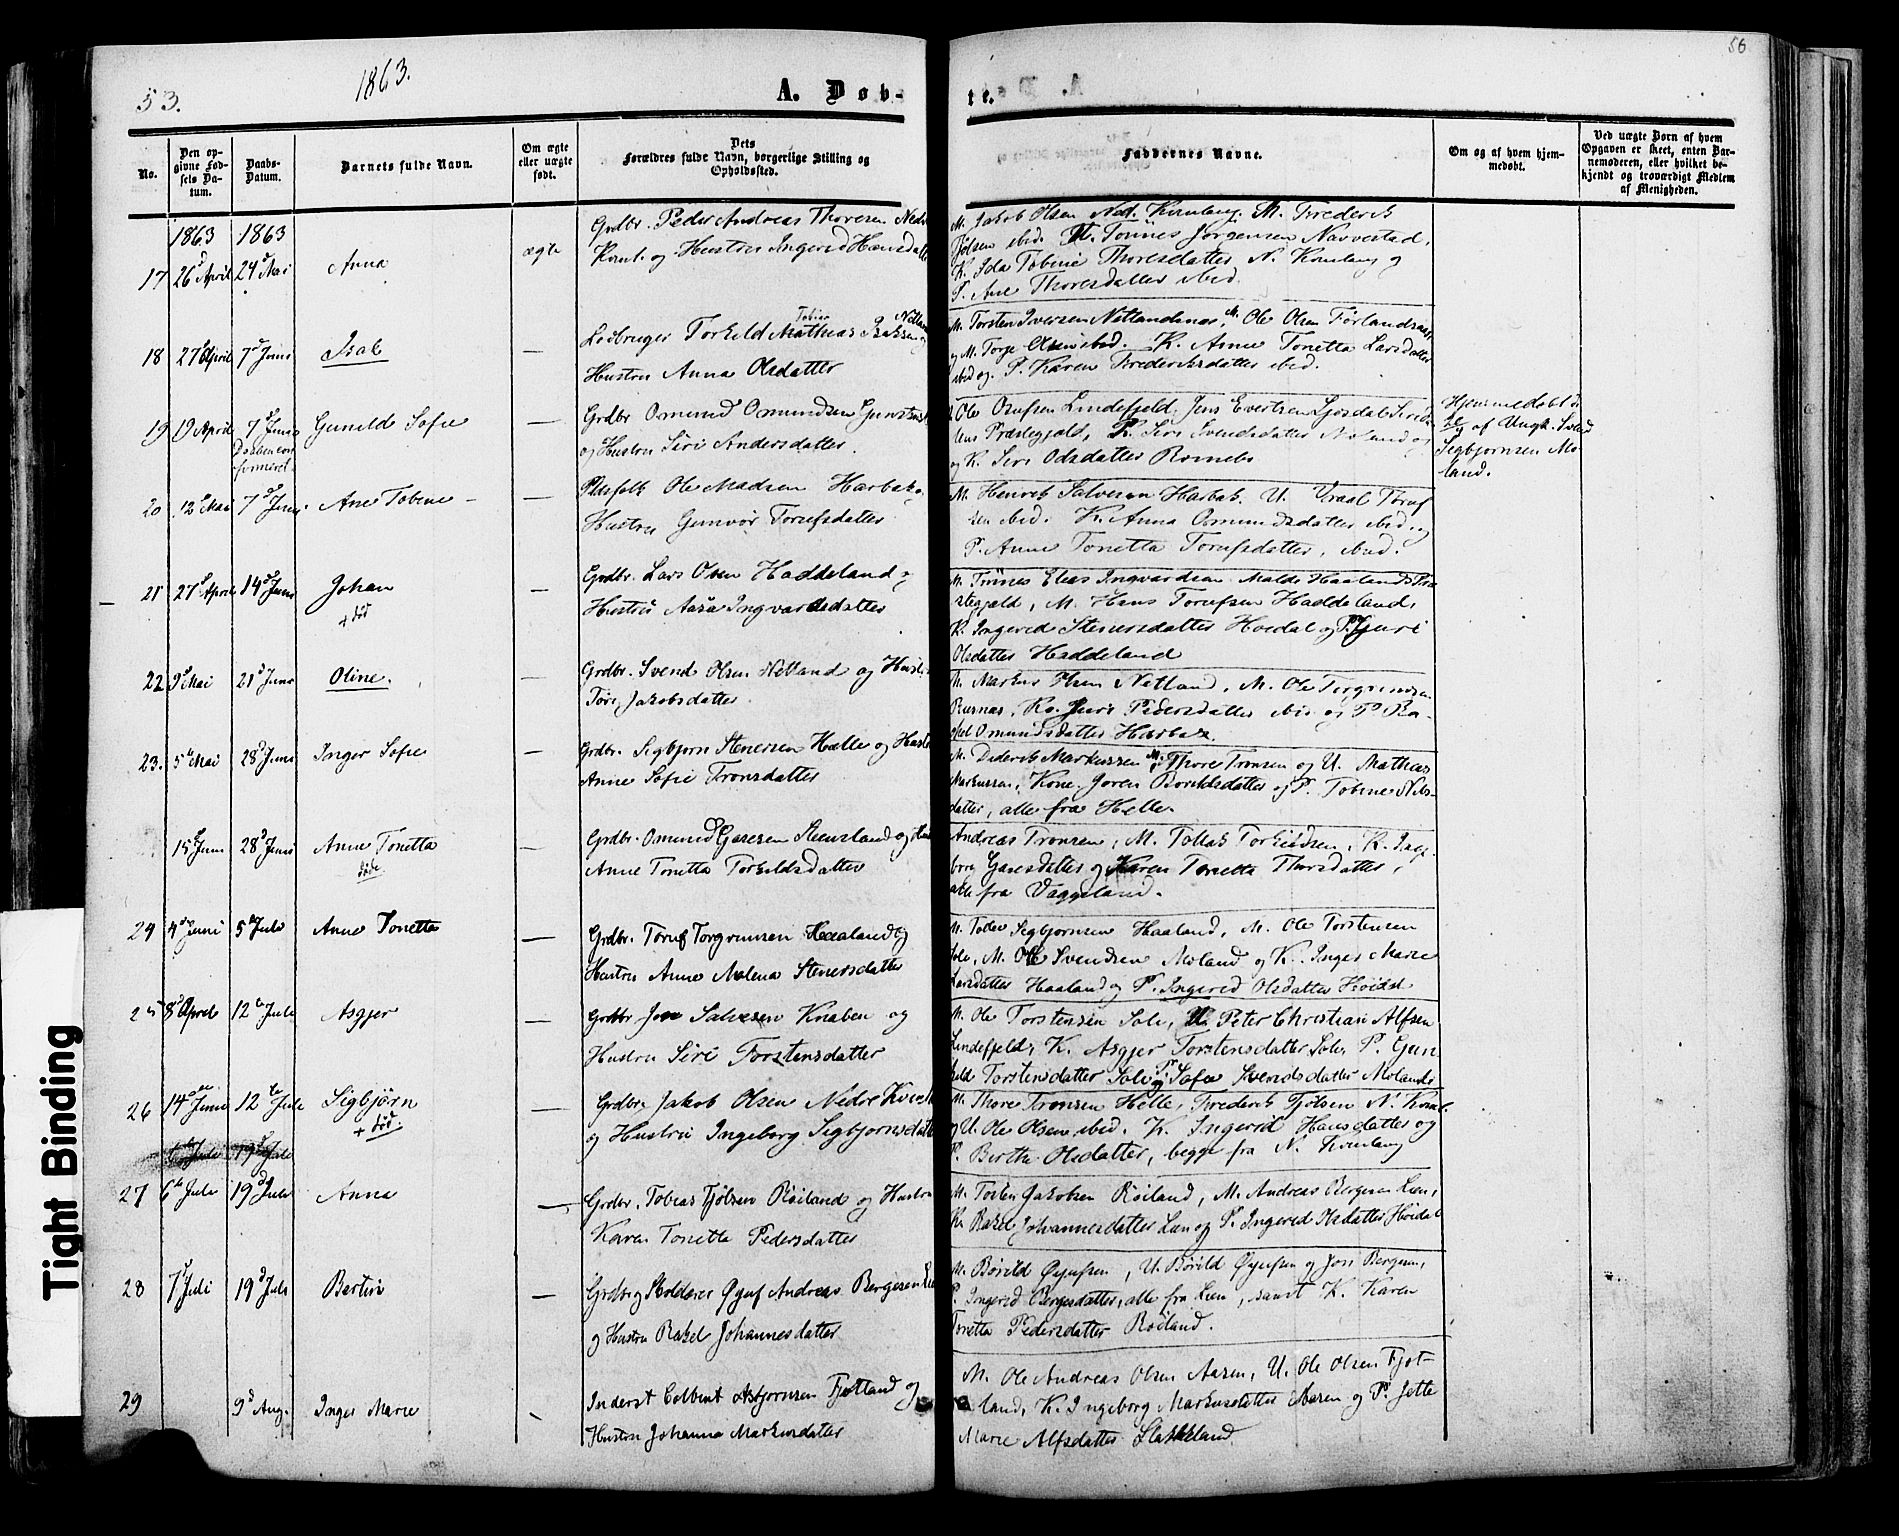 53.
1863.
A. Døb-
te.
56
No.
Den opgivne Fødsels Datum.
Daabs-Datum.
Barnets fulde Navn.
Om ægte eller uægte født.
Dets Forældres fulde Navn, borgerlige Stilling og Opholdssted.
Faddernes Navne.
Om og af hvem hjemmedøbt.
Ved uægte Børn af hvem Opgaven er skeet, enten Barnemoderen, eller hvilket bekjendt og troværdigt Medlem af Menigheden.
1863 1863
17 26 April 24 Mai Anna ægte
Grdbr. Peder Andreas Thoresen Nedre
og Hustru Ingerid Hansdatter
M. Jakob Olsen Ned. M. Frederik
Fjølsen ibid. M. Tønnes Jørgensen Navvestad,
K. Ida Tobine Thoresdatter N. og
P. Ane Thoresdatter ibid.
18 27 April 7 Juni Isak —
Torkild Mathias Isaksen
Tobias
Netland
Hustru Anna Olsdatter
M. Torsten Iversen Netlandsnes, M. Ole Olsen
og M. Torje Olsen ibid. K. Anne Tonetta Larsdatter
ibid og P. Karen Frederiksdatter ibid.
19 April 7 Juni Gunild Sofie —
Grdbr Omund Omundsen
og Hustru Siri Andersdatter.
Ole Lindefjeld, Jens Evertsen
Præstegjæld, K. Siri Svendsdatter Moland og
og K. Siri Olsdatter
Hjemmedøbt
af Ungk. Svend
Sigbjørnsen Mo-
land.
20 12 Mai 7 Juni Ane Tobine —
Plasfolk Ole Madsen Harbak og
Hustru Gunvør Torufsdatter
M. Henrik Salvesen Harbak. U.
ibid. K. Anna Omundsdatter ibid. og
P. Anne Tonetta Torufsdatter, ibid.
21 27 April 14 Juni Johan —
+ død
Grdbr. Lars Olsen Haddeland og
Hustru Aasa Ingvardsdatter
M. Tønnes Elias Ingvardsen
M. Hans Torufsen Haddeland,
K. Ingerid Stenersdatter Hoidal og P. Guri
Olsdatter Haddeland
22 9 Mai 21 Juni Oline. —
Grdbr. Svend Olsen Netland og Hustru
Jakobsdatter
M. Markus Olsen Netland, M. Ole Torgrimsen
K. Guri Pedersdatter ibid og P. Ra-
kel Omundsdatter Harbak.
23. 5 Mai 28 Juni Inger Sofie —
Grdbr. Sigbjørn Stenersen Helle og Hustru
Anne Sofie Tronsdatter
M. Diderik Markussen M. Thore Tronsen og U. Mathias
Markussen, Kone Joren Borildsdatter og P. Tobine Nils-
datter, alle fra Helle
15 Juni 28 Juni Anne Tonetta —
døbt
Grdbr. Omund Garesen Steensland og
Anne Tonetta Torkildsdatter
Andreas Tronsen, M. Tollak Torkildsen, K. Inge-
borg Garesdatter og Karen Tonetta Thorsdatter,
alle fra Vaggeland.
24 4 Juni 5 Juli Anne Tonetta —
Grdbr. Toruf Torgrimsen Haaland og
Hustru Anne Malena Stenersdatter
M. Sigbjørnsen Haaland, M. Ole Torstensen
Sole, M. Ole Svendsen Moland og K. Inger Marie
Larsdatter Haaland og P. Ingerid Olsdatter
25 8 April 12 Juli Asgjer —
Grdbr Jon Salvesen Knaben og
Hustru Siri Torstensdatter
M. Ole Torstensen Sole, U. Peter Christian Alfsen
Lindefjeld, K. Asgjer Torstensdatter Sole, P. Gun
hild Torstensdatter Sole og P. Sofie Svendsdatter Moland
26 14 Juni 12 Juli Sigbjørn —
+ død.
Grdbr. Jakob Olsen Nedre
og Hustru Ingeborg Sigbjørnsdatter
M. Thore Tronsen Helle, Frederik Fjølsen N.
og U. Ole Olsen ibid. K. Ingerid Hansdatter og
P. Berthe Olsdatter, begge fra N.
6 Juli 19 Juli
27 6 Juli 19 Juli Anna —
Grdbr. Tobias Fjølsen Røiland og Hustru
Karen Tonette Pedersdatter
M. Torsten Jakobsen Røiland, M. Andreas Bergesen Lien,
K. Rakel Johannesdatter Lien og P. Ingerid Olsdatter Hoidal
28 7 Juli 19 Juli Bertin —
Grdbr og Skolelærer Øyuf Andreas Bergesen Lien
og Hustru Rakel Johannesdatter
M. Børild Øyufsen, U. Børild Øyufsen og Jon Bergesen,
P. Ingerid Bergesdatter, alle fra Lien, samt K. Karen
Tonetta Pedersdatter Røiland.
29 9 Aug. Inger Marie
Inderst Asbjørnsen Fjotland og
Hustru Johanna Markusdatter
M. Ole Andreas Olsen Aasen, U. Ole Olsen Fjot-
land, K. Ingeborg Markusdatter Aasen og P. Jette
Marie Alfsdatter
Tight Binding